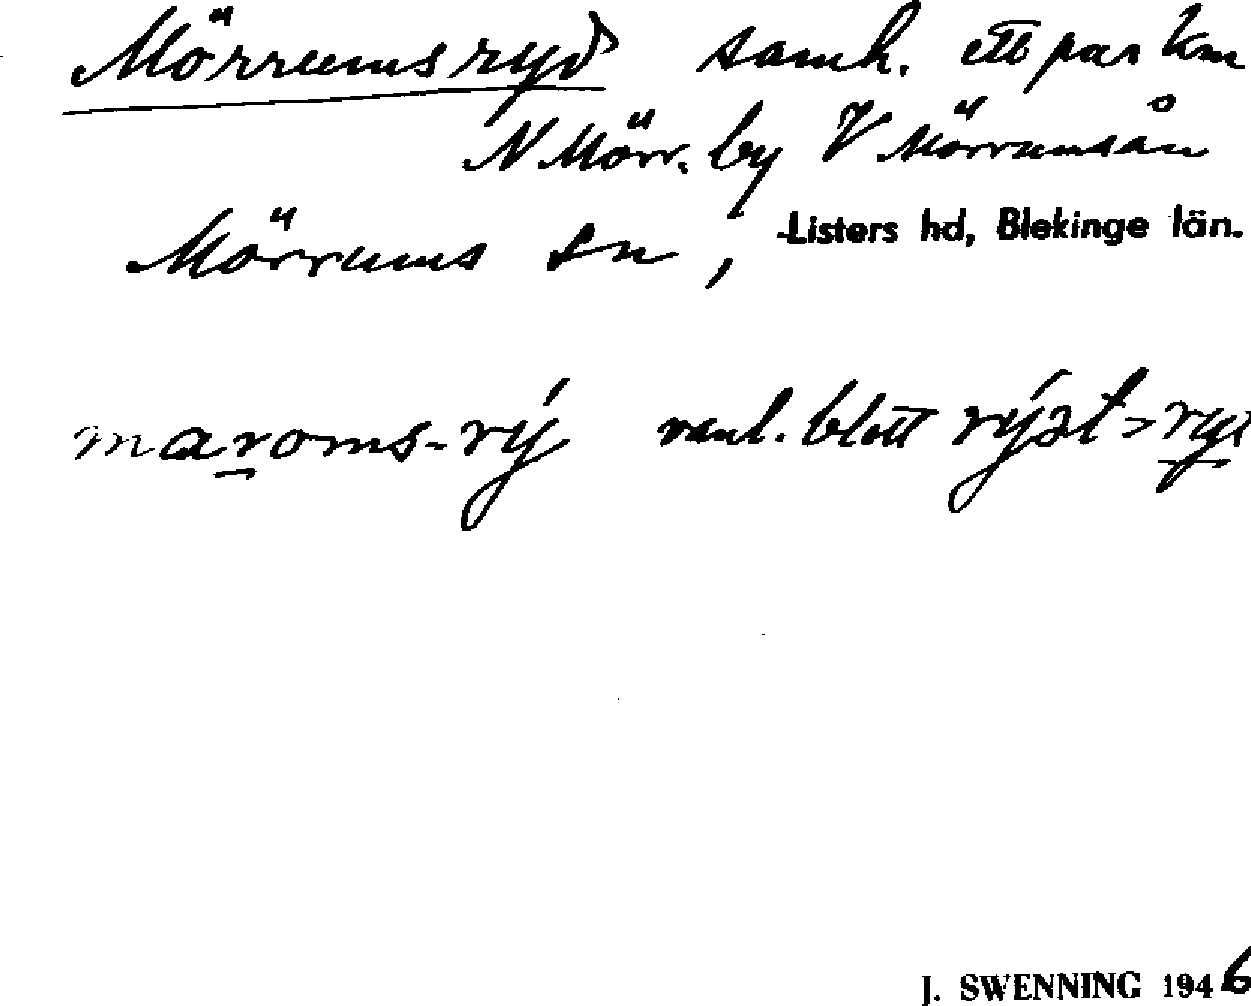 Mörrumsryd samh. ett par km
N Mörr. by V Mörrumsån
Mörrums sn, Listers hd, Blekinge län.
maroms-rý vanl. blott rýət >
J. SWENNING 1946